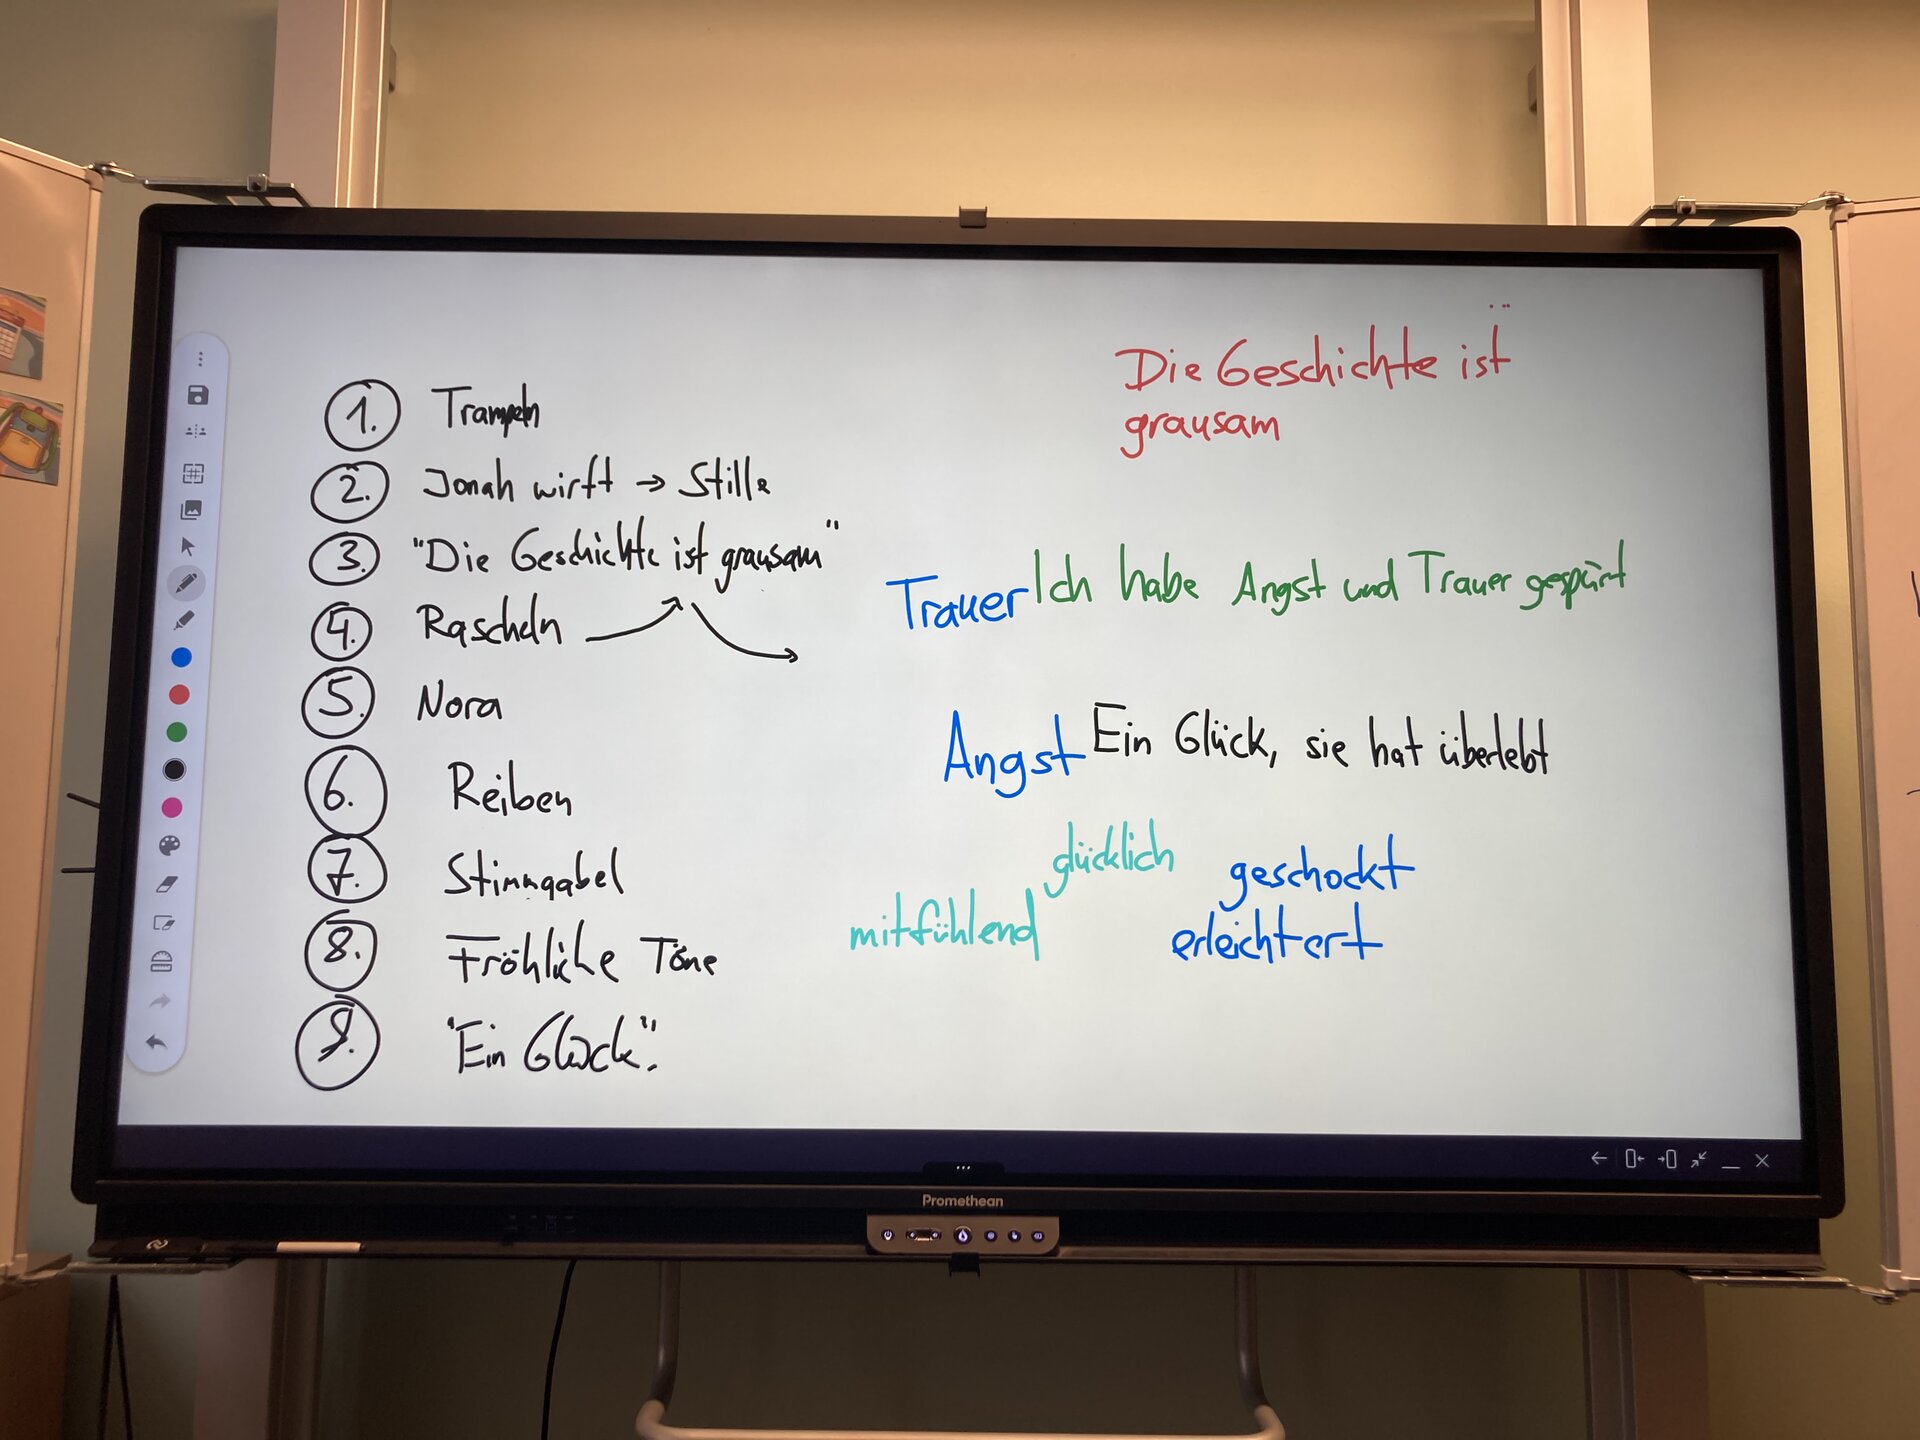 1. Trampeln
2. Jonah wirft → Stille
3. "Die Geschichte ist grausam"
4. Rascheln
5. Nora
6. Reiben
7. Stimmgabel
8. Fröhliche Töne
9. "Ein Glück".
Die Geschichte ist
grausam
Trauer Ich habe Angst und Trauer gespürt
Angst Ein Glück, sie hat überlebt
glücklich
geschockt
mitfühlend
erleichtert
Promethean